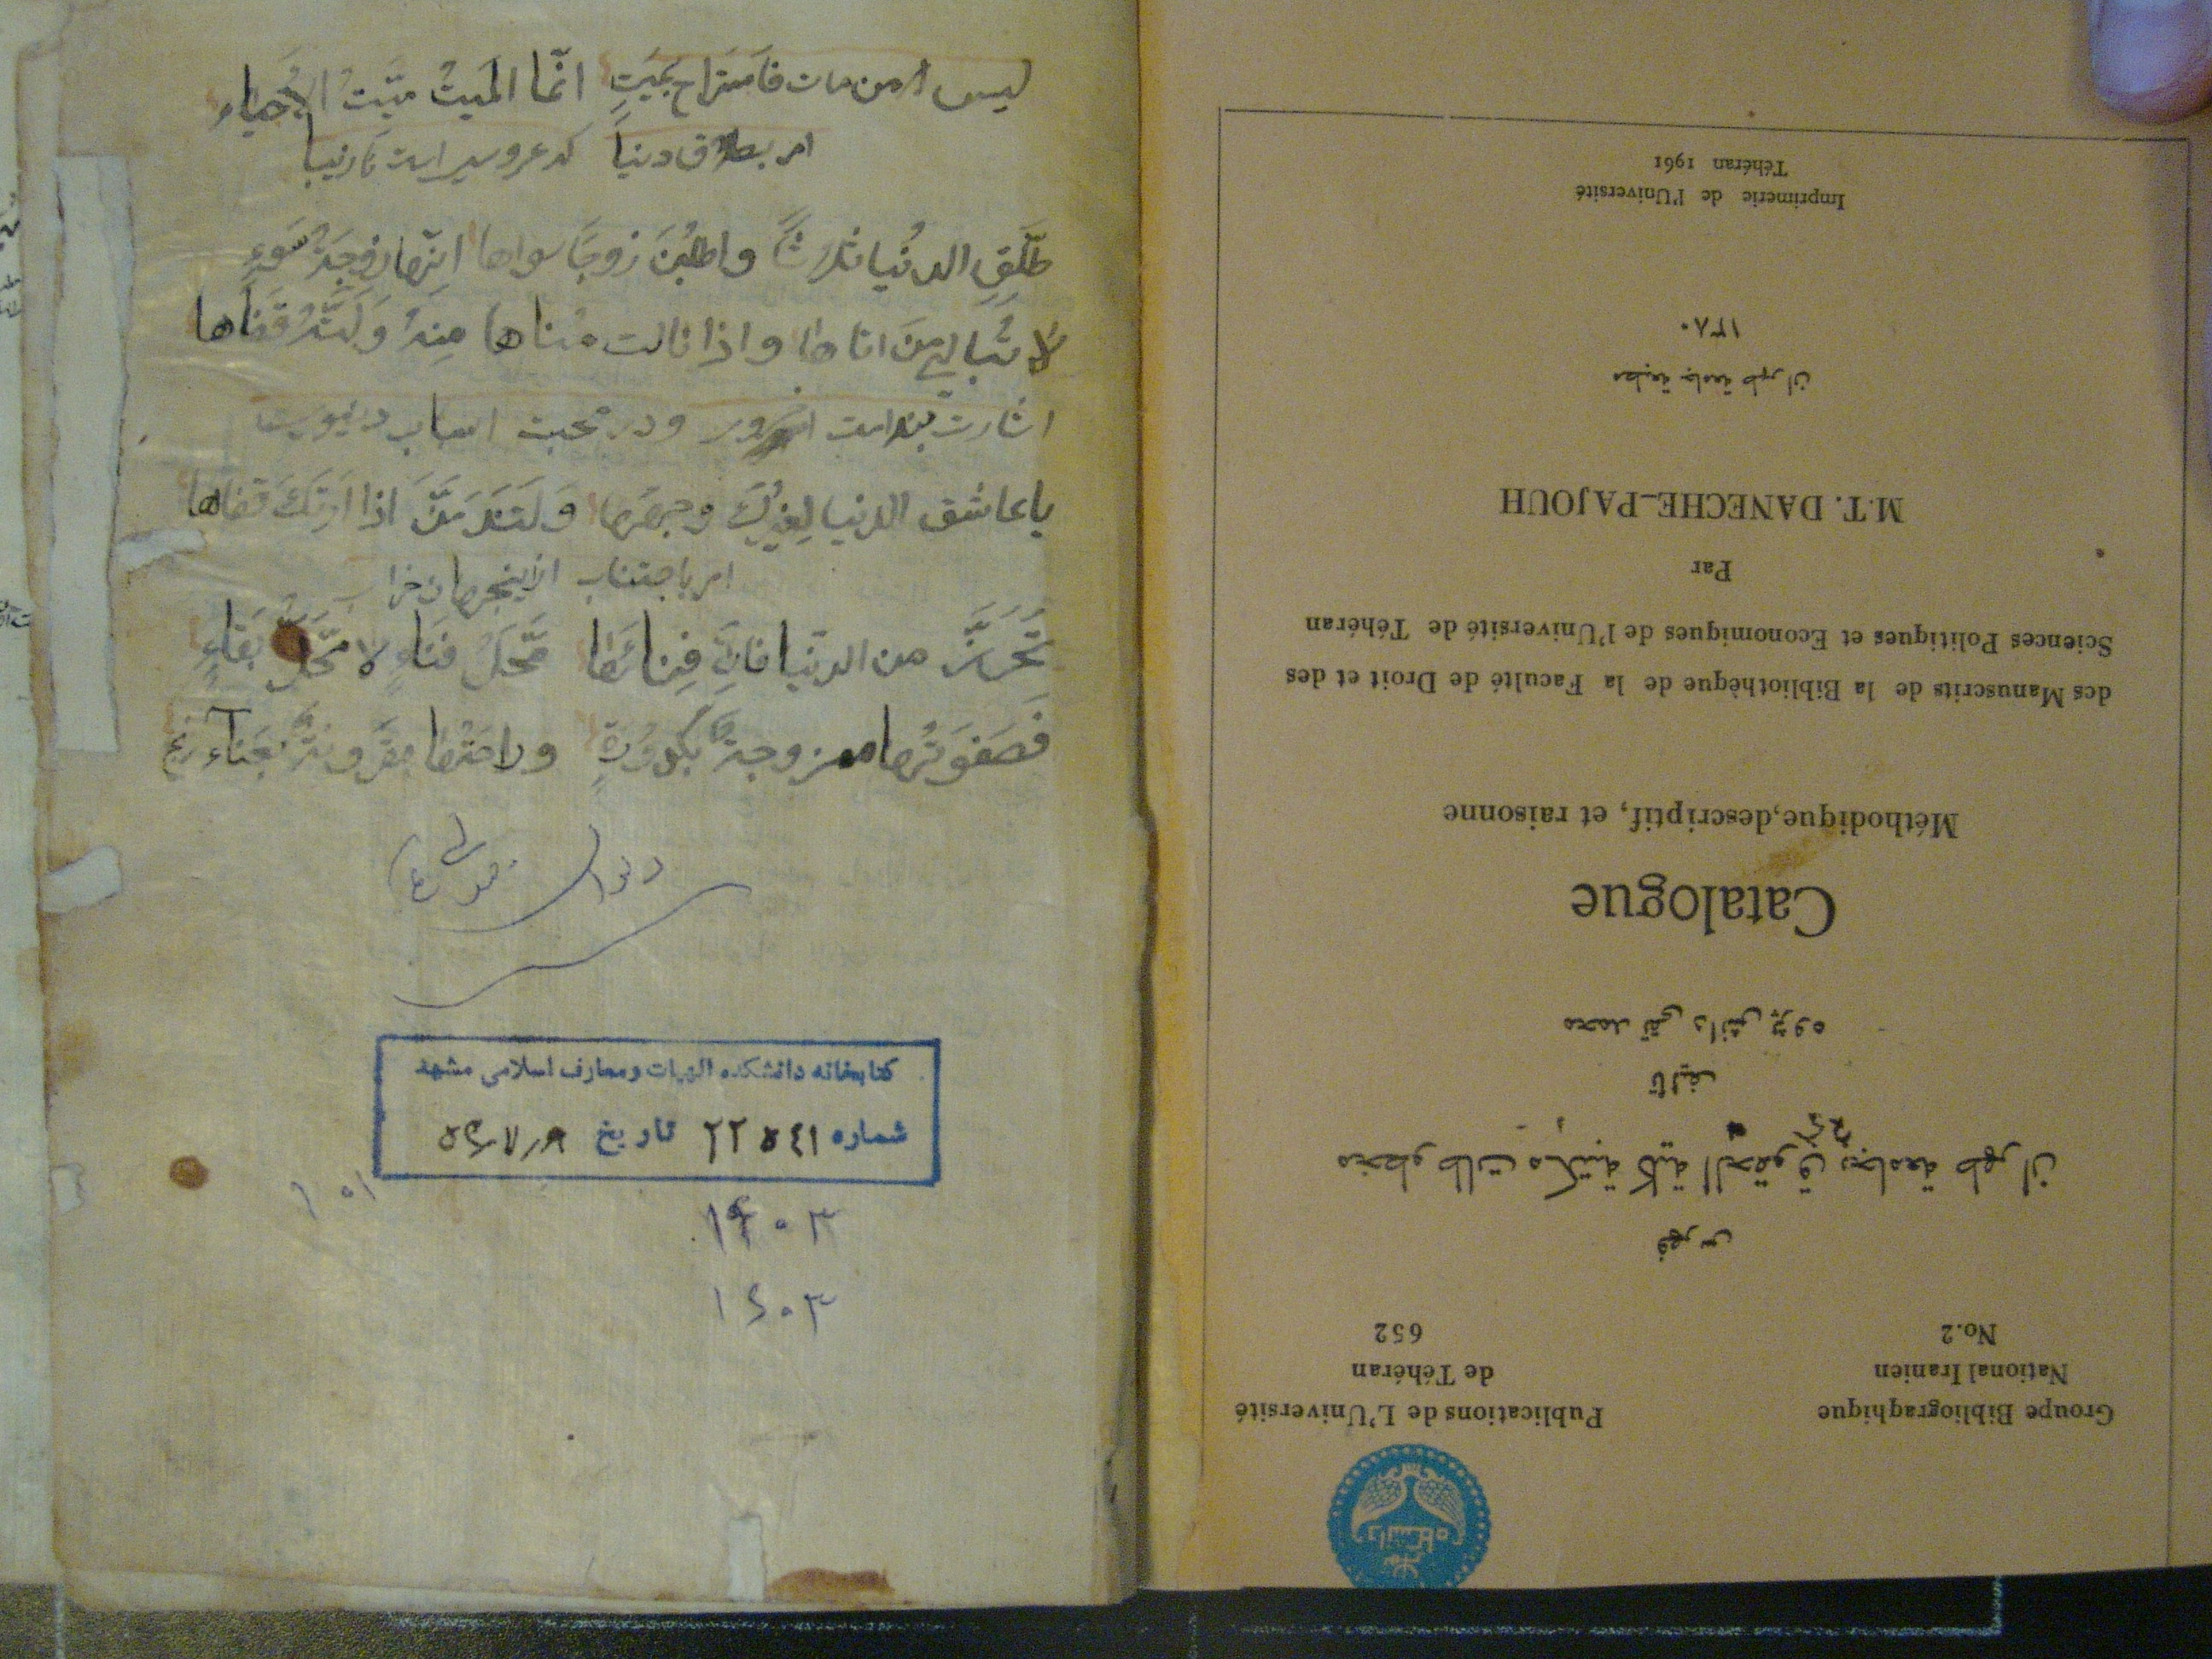 ليس من مات فاستراح بميت انّما الميتُ ميّتُ الاحياء
امر بطلاق دنيا كه عروس است نازيبا
طلّقِ الدنيا ثلاثاً واطلبنَ زوجًا سواها انّها زوجةُ سَوءٍ
لا تبالي من اتاها واذا نالت مناها مِنهُ وَلّتهُ قفاها
اشارت در محبت اسباب
يا عاشق الدنيا يغرّك وجهها وَلَتَندَمَنَّ اذا ارتك قفاها
امر باجتناب ازاينجهان خراب
تحرّز من الدنيا فانّ فِنائها محَلّ فناءٍ لا محَلّ بقاءٍ
فَصَفوَتُها ممزوجةٌ بكدورةٍ وراحتُها مقرونةٌ بعَناءِ
كتابخانه دانشكده الهيات ومعارف اسلامى مشهد
شماره ٢٢٥٤١ تاريخ
١٠١
١٤٠٣
١٤٠٣
Groupe Bibliographique National Iranien No.2
Publications de L'Université de Téhéran 652
فهرس
مخطوطات مكتبة كلية الحقوق بجامعة طهران
تأليف
محمد تقى دانش پژوه
Catalogue
Méthodique,descriptif, et raisonne
des Manuscrits de la Bibliothèque de la Faculté de Droit et des
Sciences Politiques et Economiques de l'Université de Téhéran
Par
M.T. DANECHE-PAJOUH
مطبعة جامعة طهران
١٣٨٠
Imprimerie de l'Université
Téhéran 1961